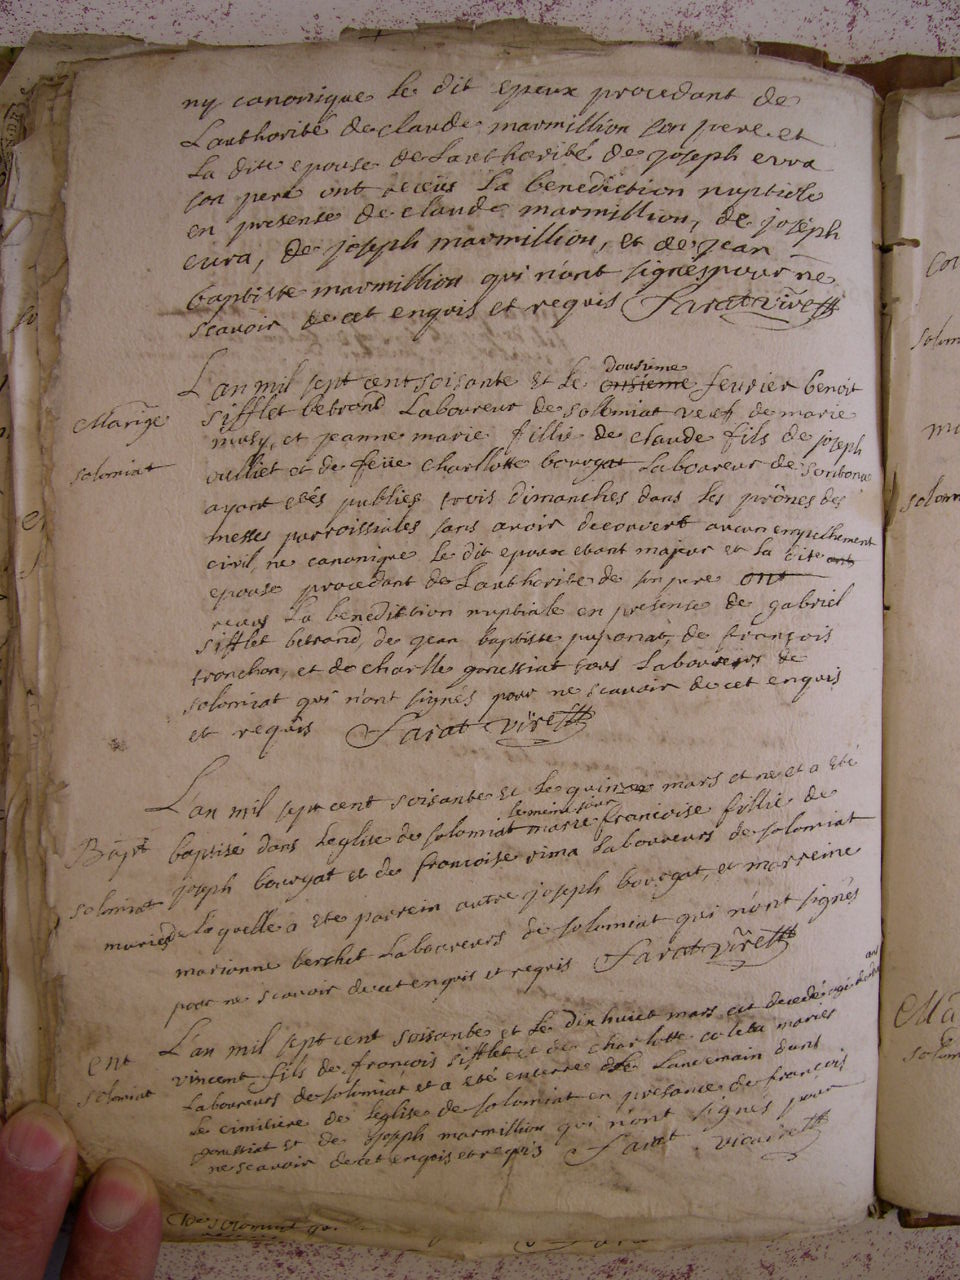 ny canonique le dit epoux procedant de
L'authorité de claude marmillion son pere et
la dite epouse de L'authorité de joseph evra
son pere ont receüs la benediction nuptiale
en presense de claude marmillion, de joseph
evra, de joseph marmillion, et de jean
baptiste marmillion qui n'ont signés pour ne
scavoir de cet enquis et requis Sarat vire
L'an mil sept cent soisante et le onsieme dousieme fevrier benoit
Marige
sifflet betrand Laboureur de solomiat veuf de marie
musy, et jeanne marie fillie de claude fils de joseph
solomiat
vulliet et de feüe charllotte borogat Laboureur de
ayant etés publiés trois dimanches dans les prônes des
messes parroissiales sans avoir decouvert aucun empechement
civil, ne canonique le dit epoux etant majeur et la dite ont
epouse procedant de L'authorité de son pere ont
receus la benedittion nuptiale en presense de gabriel
sifflet betrand, de jean baptiste de françois
tronchon, et de charlle gonessiat tous Laboureurs de
solomiat qui n'ont signés pour ne scavoir de cet enquis
et requis Sarat vire
L'an mil sept cent soisante et le quinze mars et né et a eté
Bapt
baptisé dans L'eglise de solomiat le meme jour marie francoise fillie de
joseph borogat et de francoise rima Laboureurs de solomiat
solomiat
mariés de laquelle a ete parrein autre joseph borogat, et marreine
marianne berchet Laboureurs de solomiat qui n'ont signés
pour ne scavoir de cet enquis et requis Sarat vire
L'an mil sept cent soisante et le dix huict mars est decedé agé
ent
vincent fils de françois sifflet et de charlotte coleta mariés
solomiat
Laboureurs de solomiat et a eté enterre le Landemain dans
le cimitiere de L'eglise de solomiat en presance de francois
gonessiat et de joseph marmillion qui n'ont signés pour
ne scavoir de cet enquis et requis Sarat vicaire